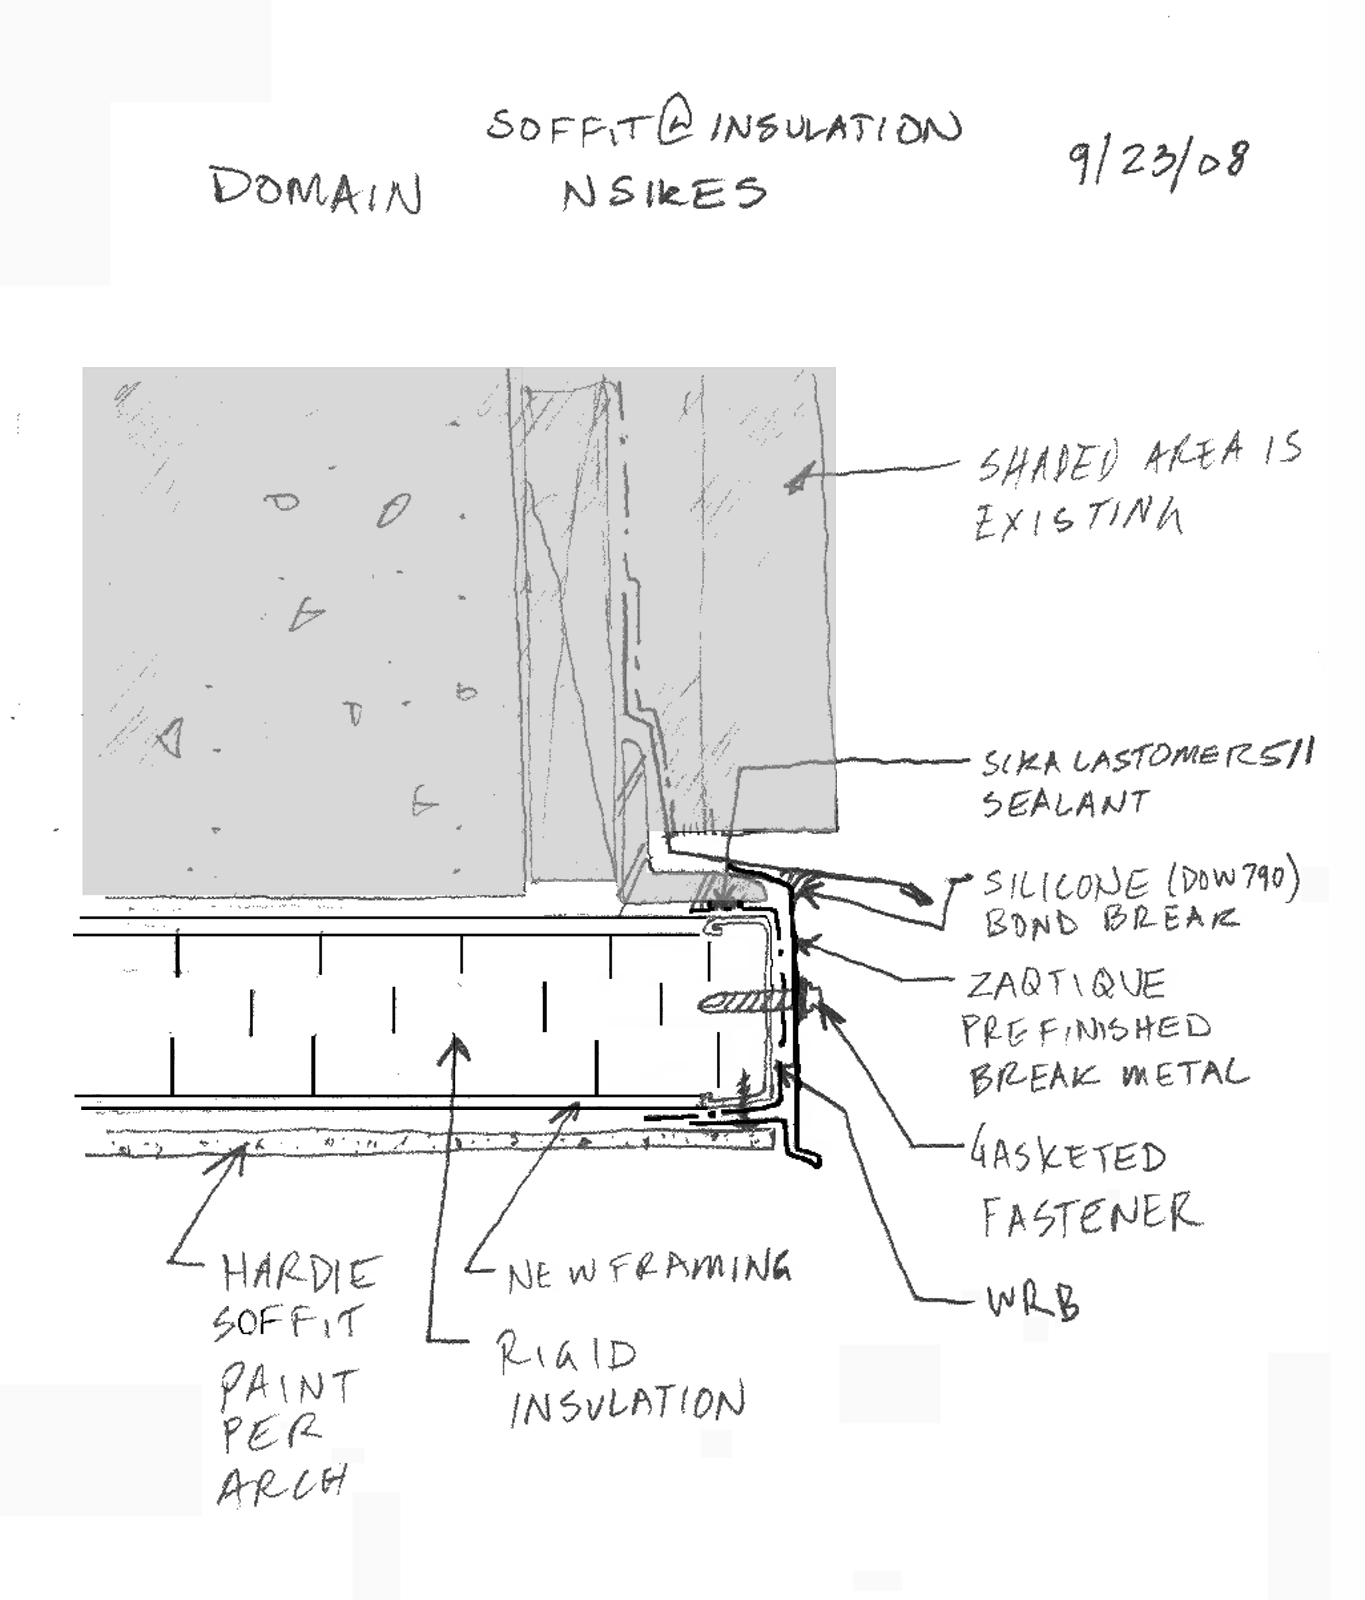 SOFFIT @ INSULATION
9/23/08
DOMAIN
NSIKES
SHADED AREA IS
EXISTING
SIKA LASTOMER 511
SEALANT
SILICONE (DOW 790)
BOND BREAK
ZAQTIQUE
PREFINISHED
BREAK METAL
GASKETED
FASTENER
WRB
NEW FRAMING
RIGID
INSULATION
HARDIE
SOFFIT
PAINT
PER
ARCH